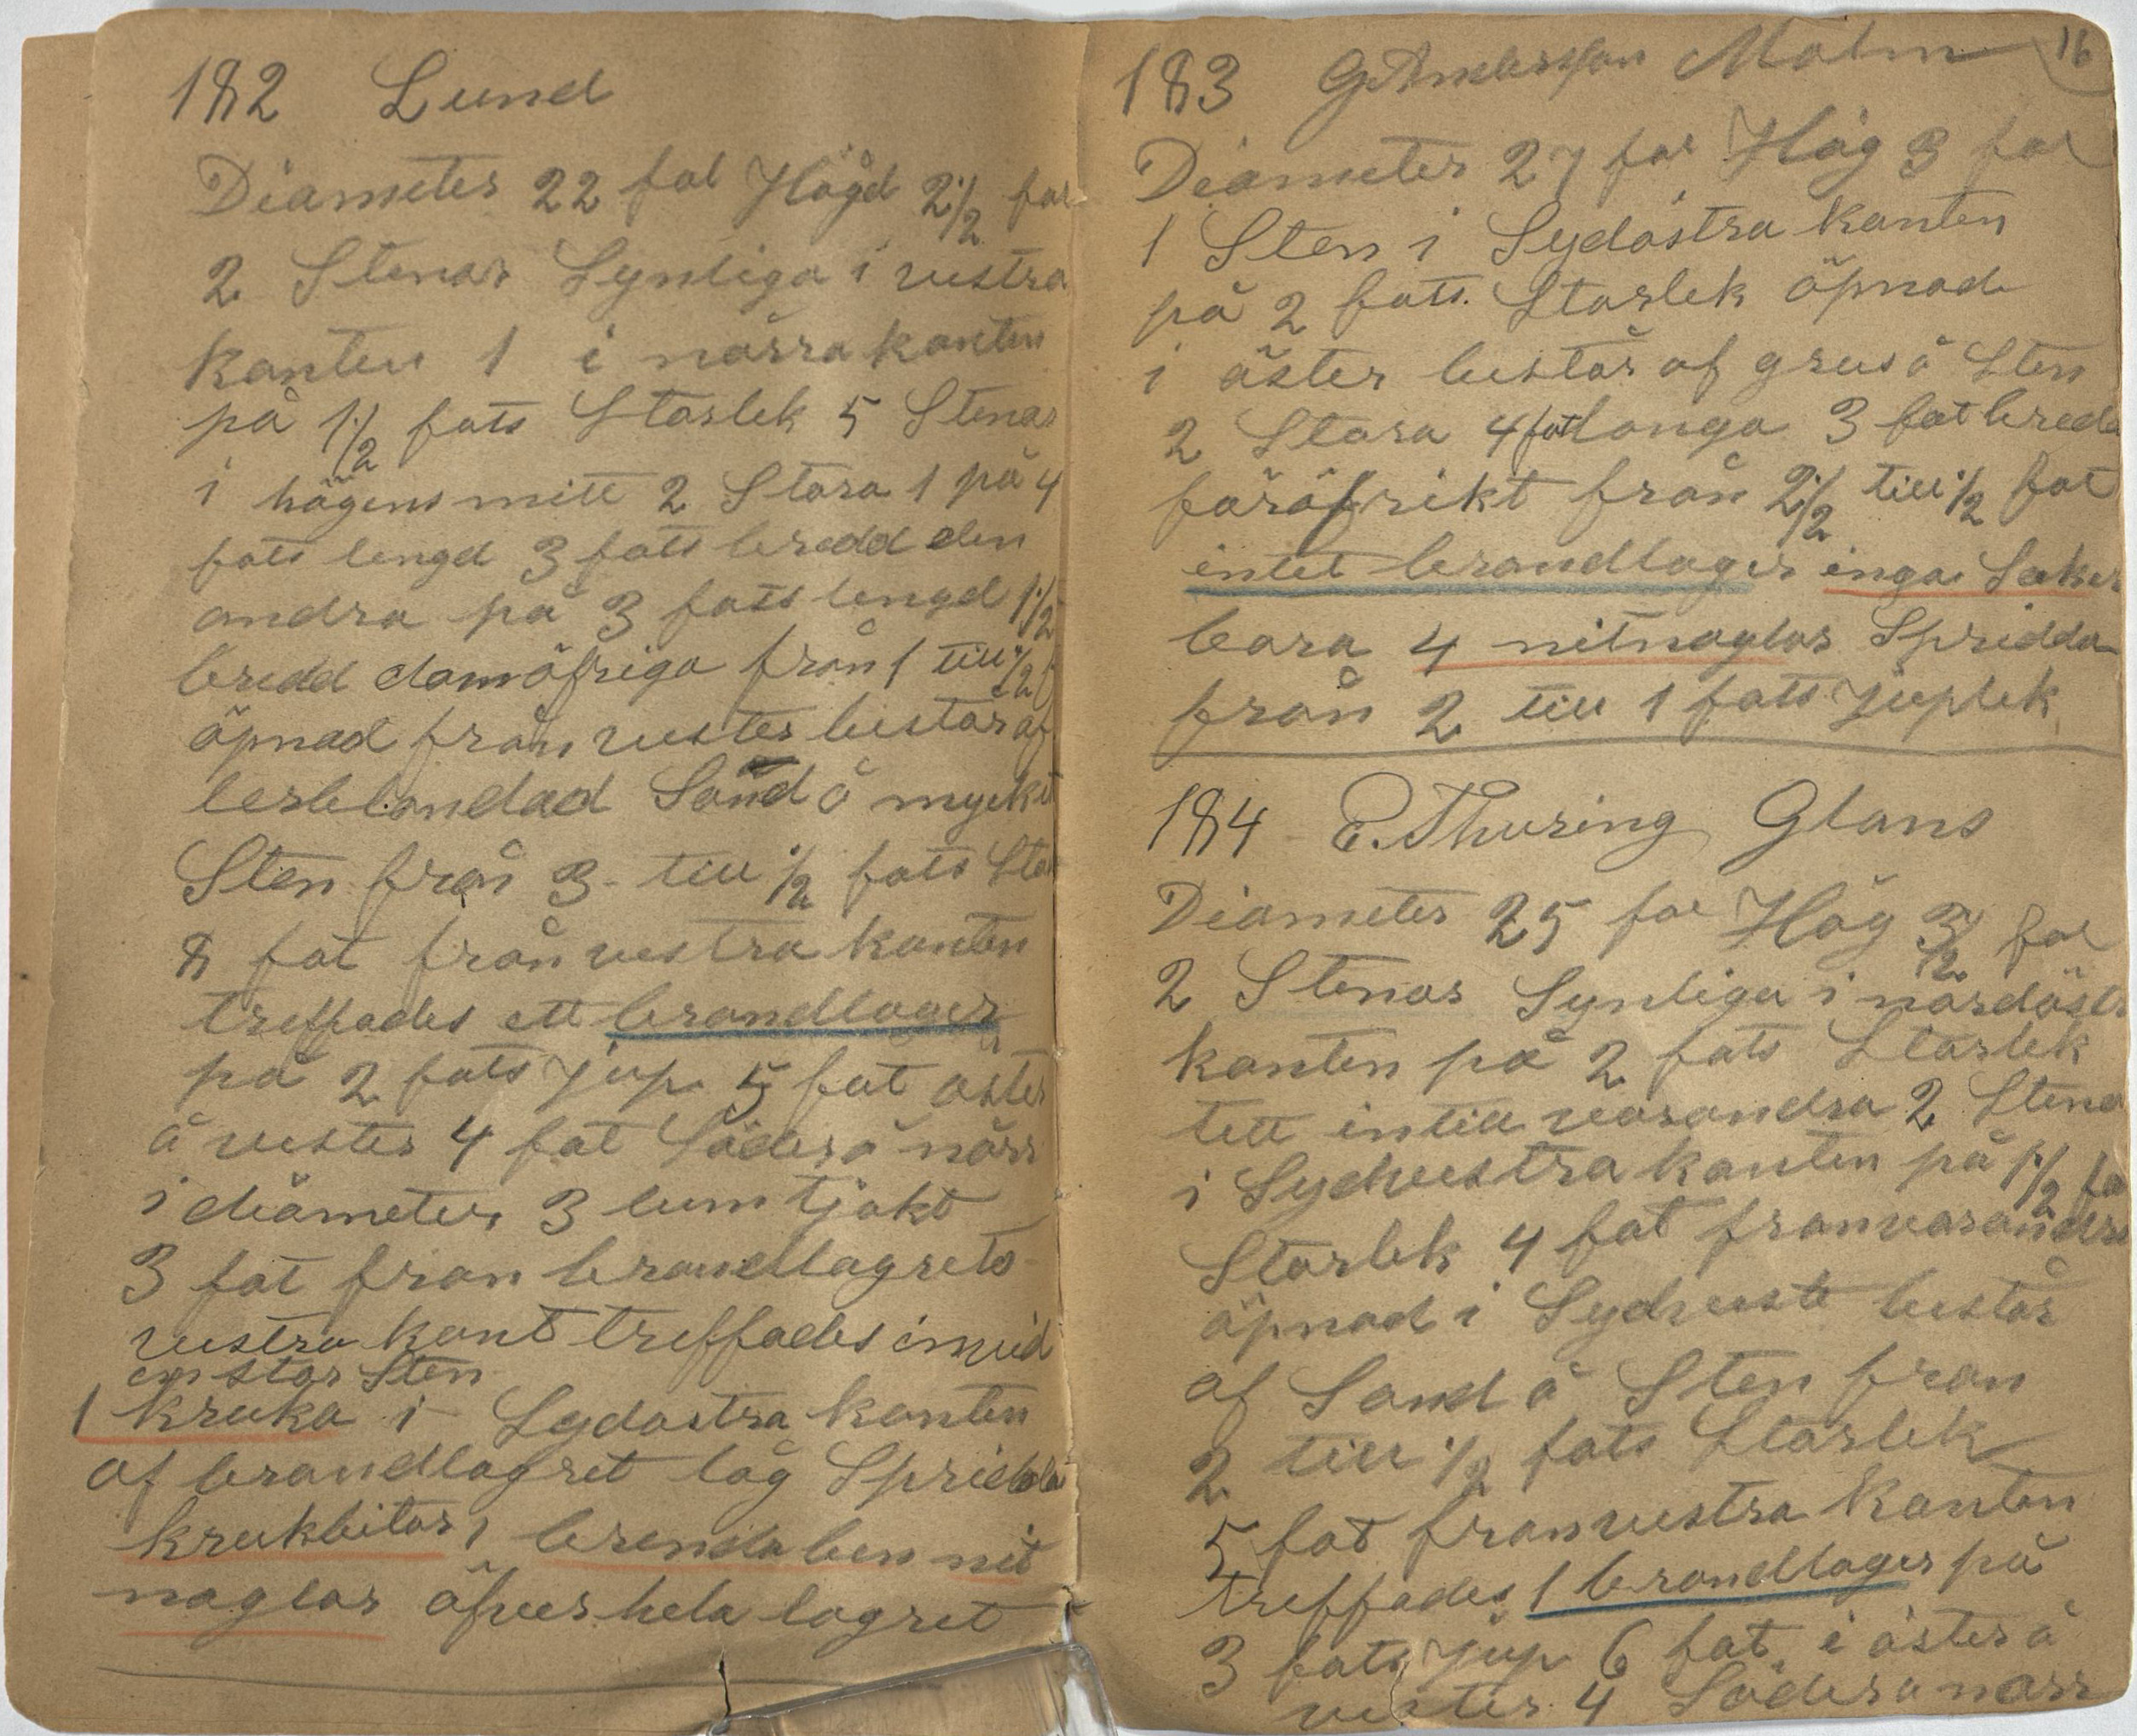 182 Lund
Diameter 22 fot Högd 2 1/2 fot
2 Stenar Synliga i vestra
kanten 1 i nörra kanten
på 1 1/2 fots Storlek 5 Stenar
i högens mitt 2 Stora 1 på 4
fots lengd 3 fots bredd den
andra på 3 fots lengd 1 1/2
bredd dom öfriga från 1 till 1/2 f
öpnad från vester består af
lerblandad Sand å myket
Sten från 3 till 1/2 fots Sto
8 fot från vestra kanten
treffades ett brandlager
på 2 fots jup 5 fot öster
å vester 4 fot Söder å nörr
i diameter 3 tum tjokt
3 fot från brandlagrets
vestra kant treffades invid
en stor Sten
1 Kruka i Sydöstra kanten
af brandlagret låg Spridda
krukbitar, brenda ben nit
naglar öfver hela lagret
16
183 G Anderson Malm
Diameter 27 fot Hög 3 fot
1 Sten i Sydöstra kanten
på 2 fots Storlek öpnad
i öster består af grus å Sten
2 Stora 4 fot longa 3 fot breda
föröfrikt från 2 1/2 till 1/2 fot
intet brandlager inga Saker
bara 4 nitnaglar Spridda
från 2 till 1 fots juplek
184 E. Thuring Glans
Diameter 25 fot Hög 3 1/2 fot
2 Stenar Synliga i nördöstr
kanten på 2 fots Storlek
tett intill varandra 2 Stena
i Sydvestra kanten på 1 1/2 fo
Storlek 4 fot från varandra
öpnad i Sydveste består
af Sand å Sten från
2 till 1/2 fots Storlek
5 fot från vestra Kanten
treffades 1 brandlager på
3 fots jup 6 fot i öster å
vester 4 Söder å nörr